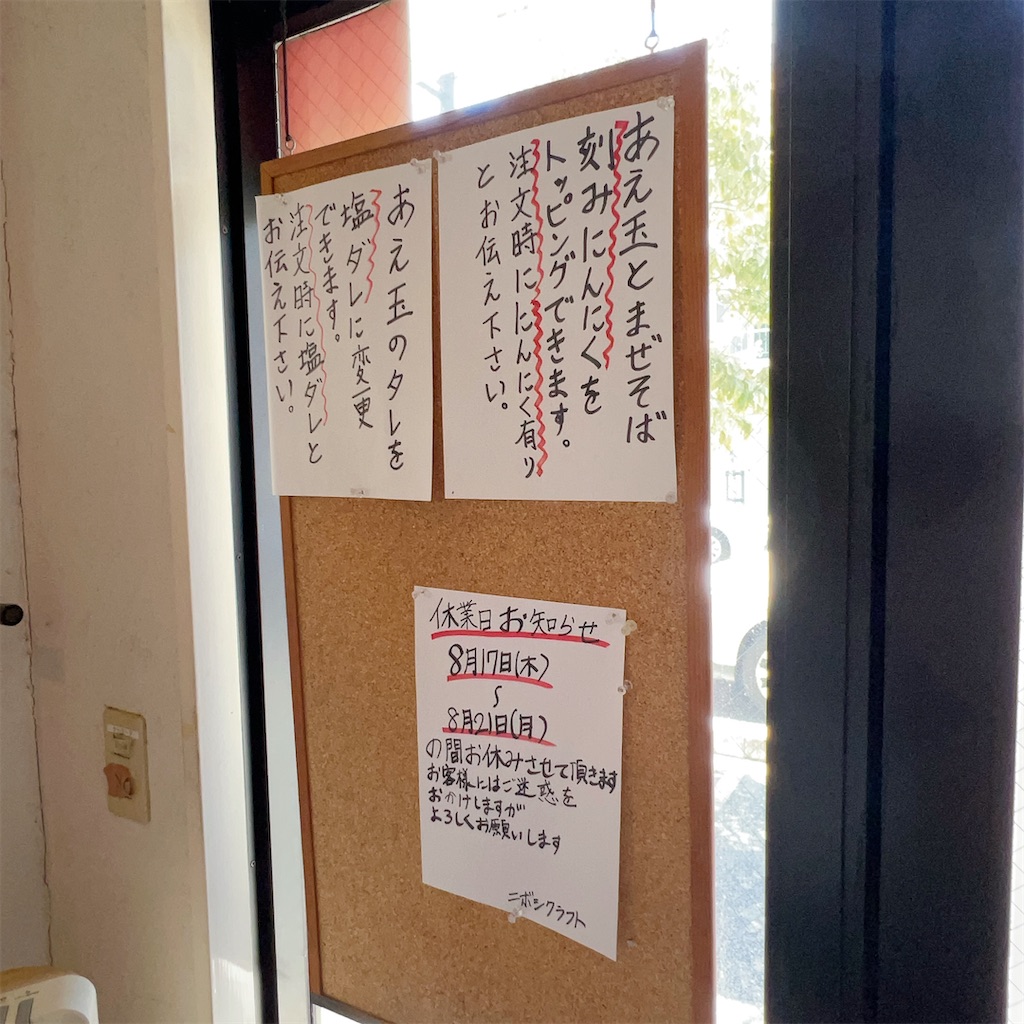 あえ玉とまぜそば
刻みにんにくを
トッピングできます。
注文時ににんにく有り
とお伝え下さい。
あえ玉のタレを
塩ダレに変更
できます。
注文時に塩ダレと
お伝え下さい。
休業日お知らせ
8月17日(木)
〜
8月21日(月)
の間お休みさせて頂きます
お客様にはご迷惑を
おかけしますが
よろしくお願いします
ニボシクラフト